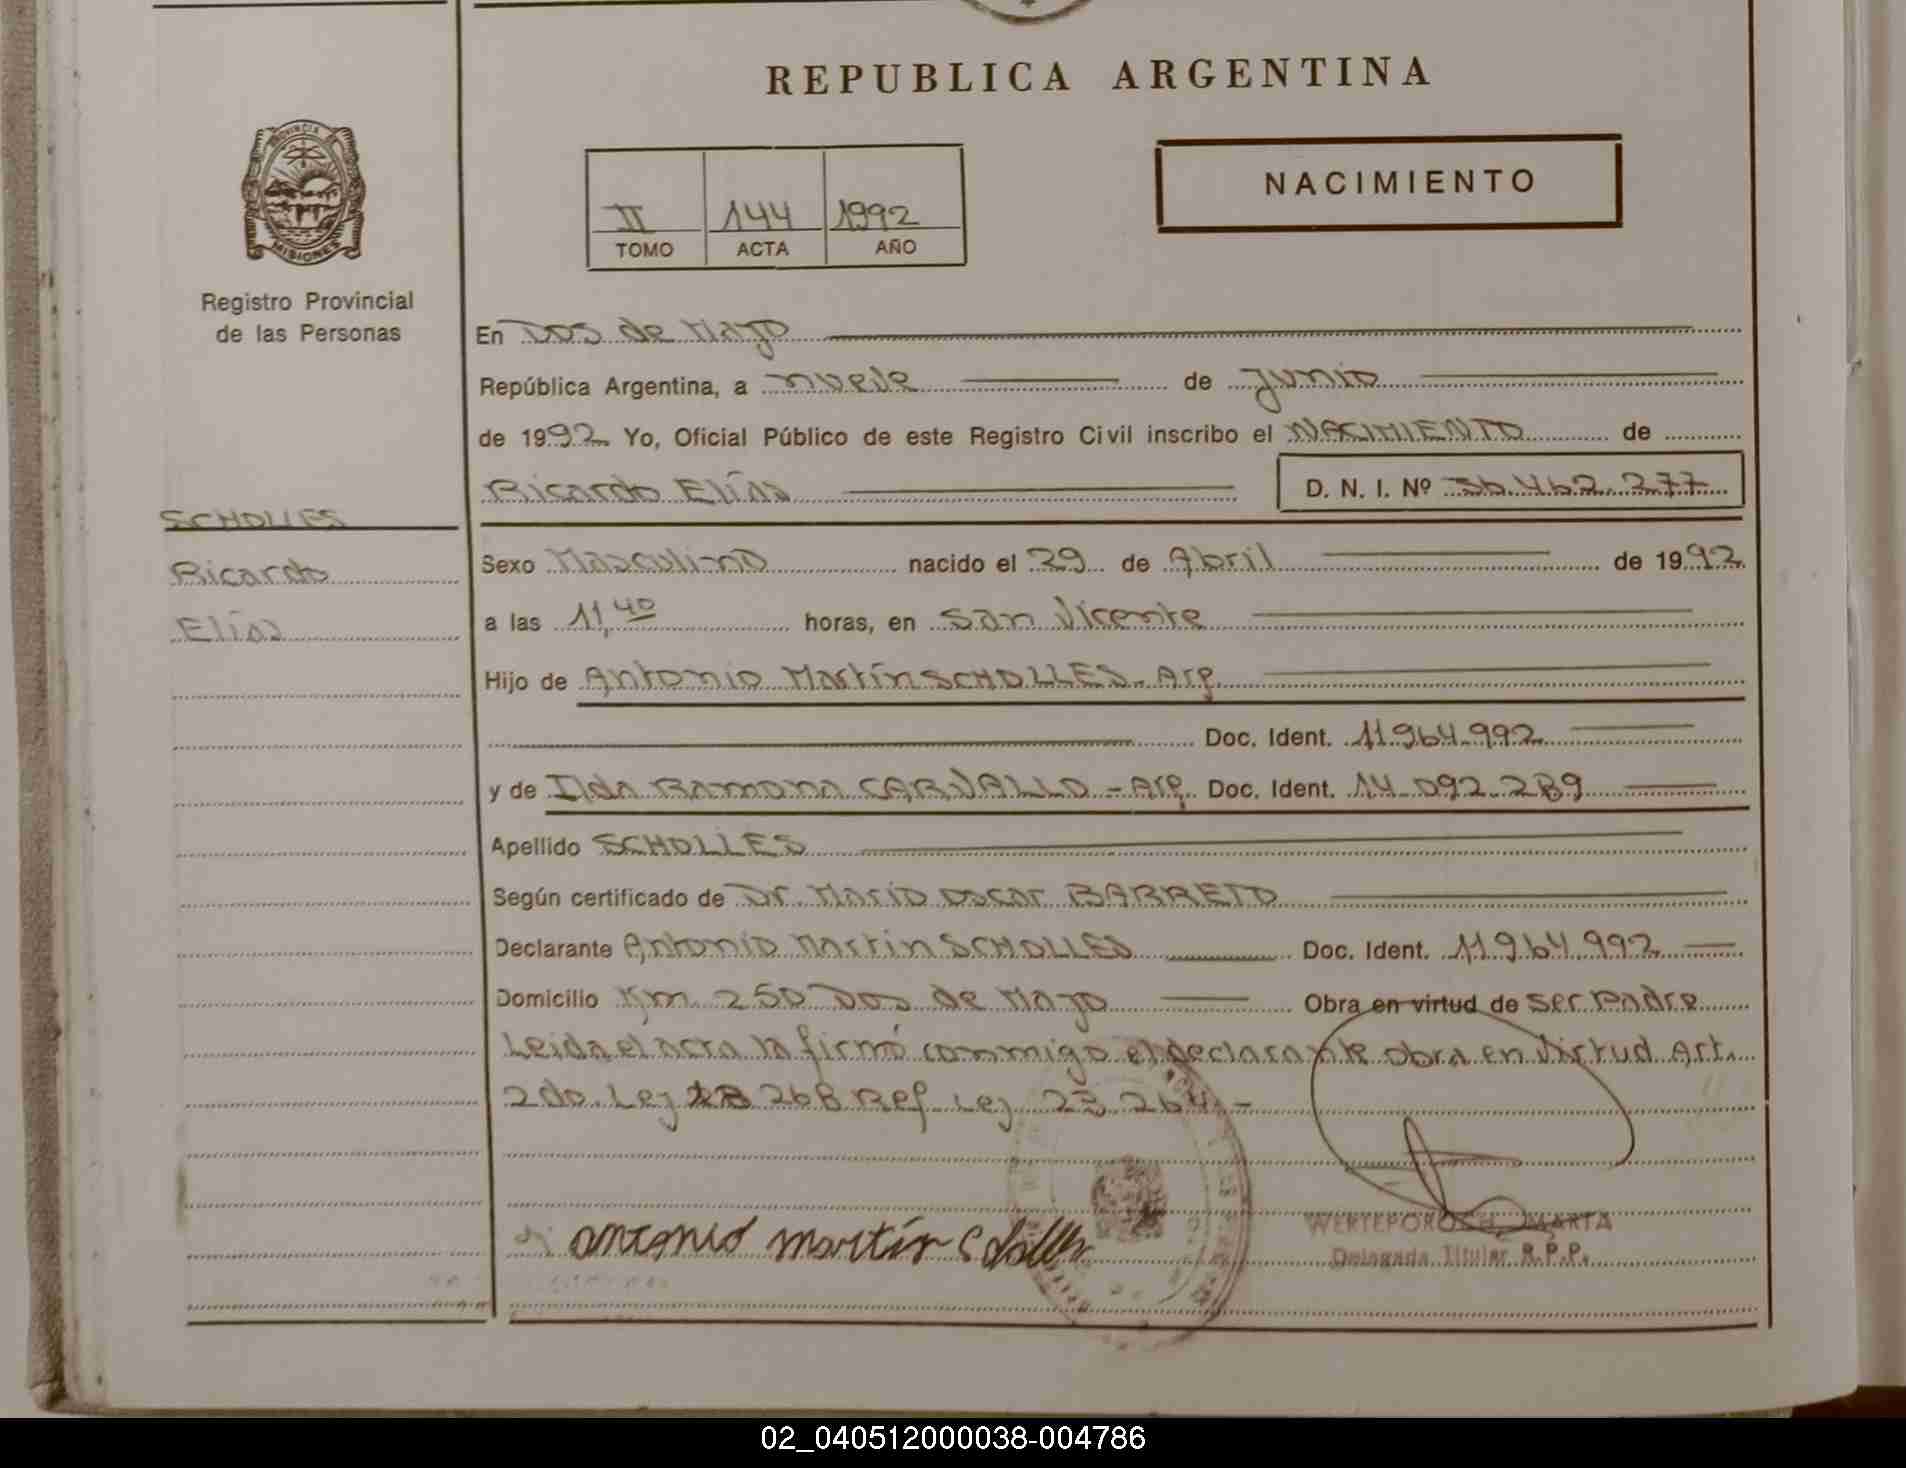 REPUBLICA ARGENTINA
PROVINCIA
MISIONES
Registro Provincial
de las Personas
II 144 1992
TOMO ACTA AÑO
NACIMIENTO
En Dos de Mayo
República Argentina, a nueve de Junio
de 1992 Yo, Oficial Público de este Registro Civil inscribo el NACIMIENTO de
Ricardo Elías D. N. I. Nº 36.462.277
SCHOLLES
Ricardo
Elías
Sexo Masculino nacido el 29 de Abril de 1992
a las 11,40 horas, en San Vicente
Hijo de Antonio Martín SCHOLLES - Arg.
Doc. Ident. 11.964.992
y de Ilda Ramona CARVALLO - Arg. Doc. Ident. 14.092.289
Apellido SCHOLLES
Según certificado de Dr. Mario Oscar BARRETO
Declarante Antonio Martin SCHOLLES Doc. Ident. 11.964.992
Domicilio Km. 250 Dos de Mayo Obra en virtud de ser Padre
Leida el acta la firmó conmigo el declarante obra en virtud Art.
2do. Ley 268 Ref. Ley 23.264 -
antonio martín Scholles
WERTEPOROCH MARTA
Delegada Titular R.P.P.
02_040512000038-004786